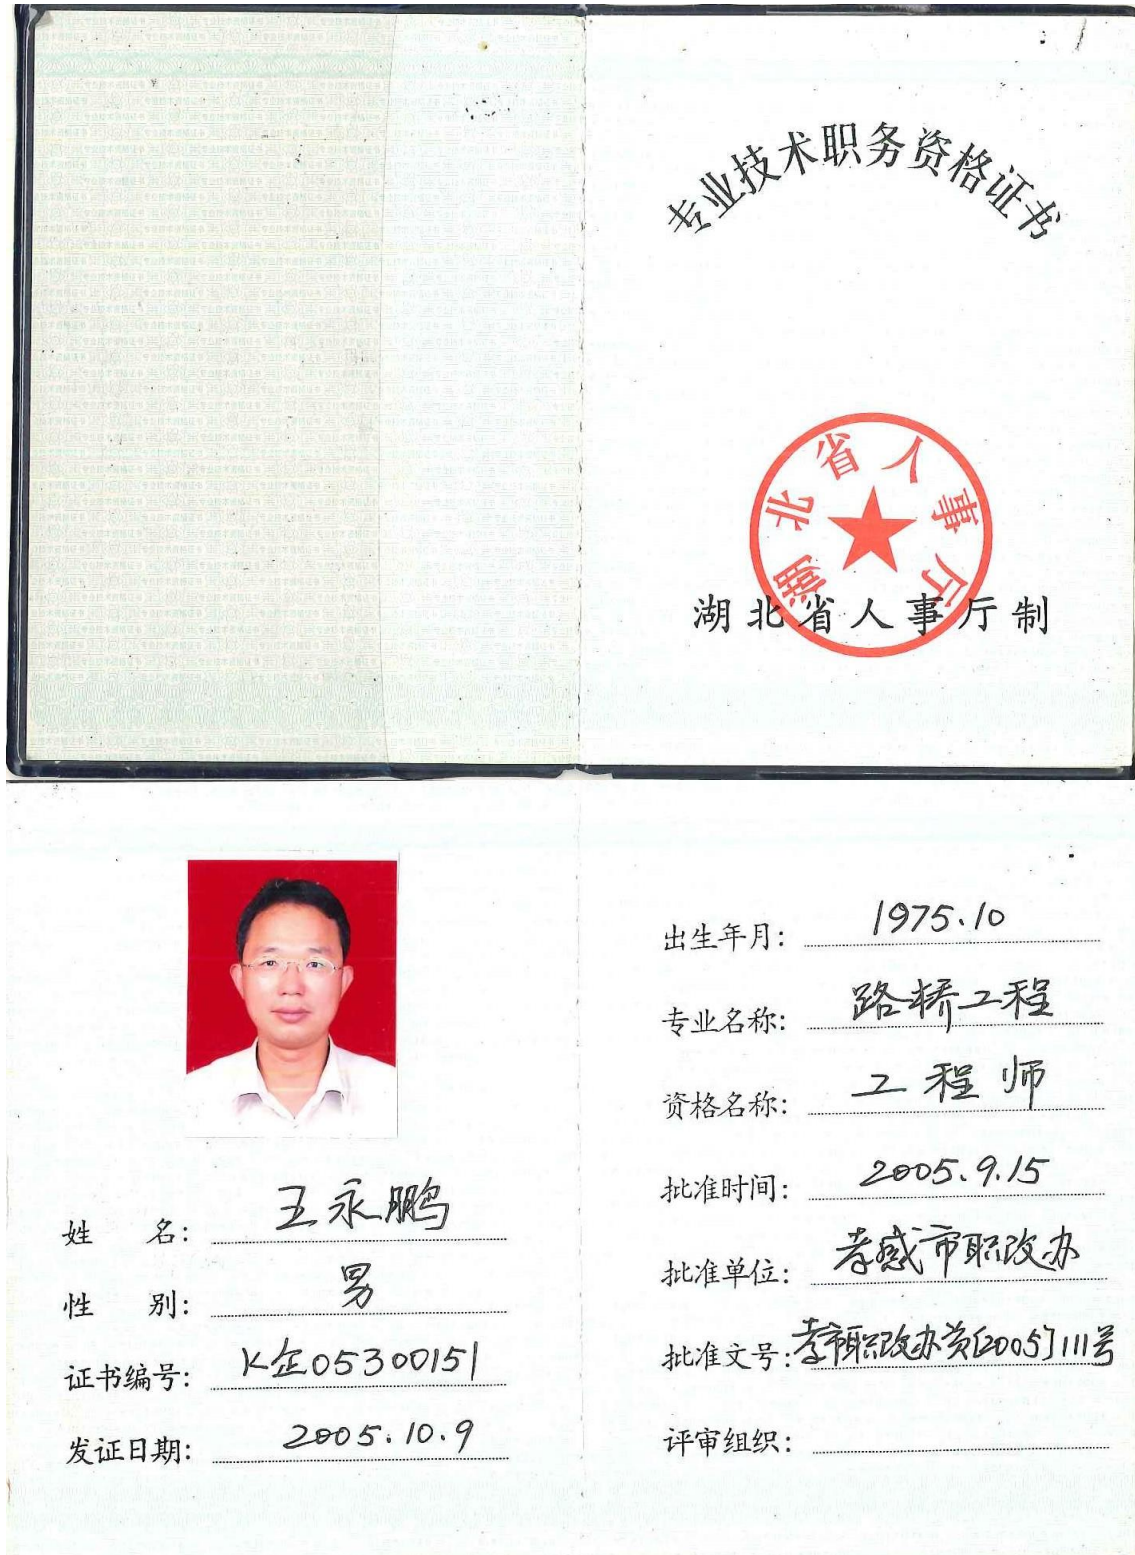 专业技术职务资格证书
湖北省人事厅
湖北省人事厅制
姓 名: 王永鹏
性 别: 男
证书编号: K企05300151
发证日期: 2005.10.9
出生年月: 1975.10
专业名称: 路桥工程
资格名称: 工程师
批准时间: 2005.9.15
批准单位: 孝感市职改办
批准文号: 孝市职改办资[2005]111号
评审组织: